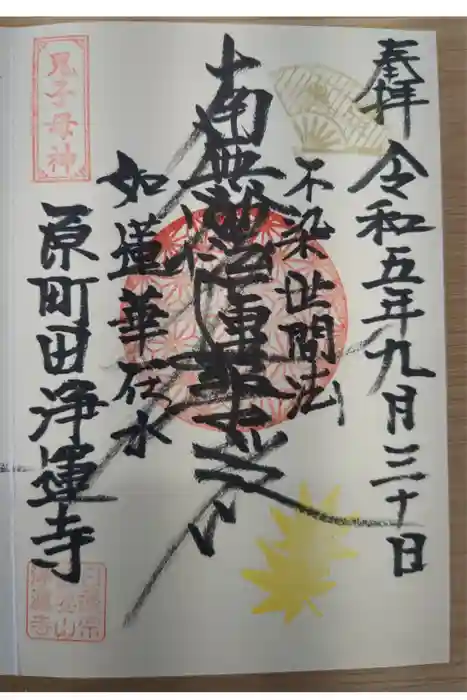 奉拝
令和五年九月三十日
不染世間法
南無妙法蓮華経
如蓮華在水
鬼子母神
原町田浄運寺